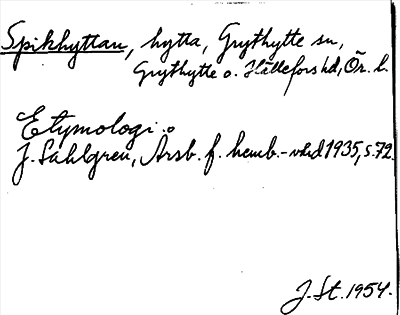 Spikhyttan, hytta, Grythytte sn,
Grythytte o. Hällefors hd, Ör. l.
Etymologi:
J. Sahlgren, Årsb. f. hemb.-vård 1935, s. 72.
J. St. 1954.